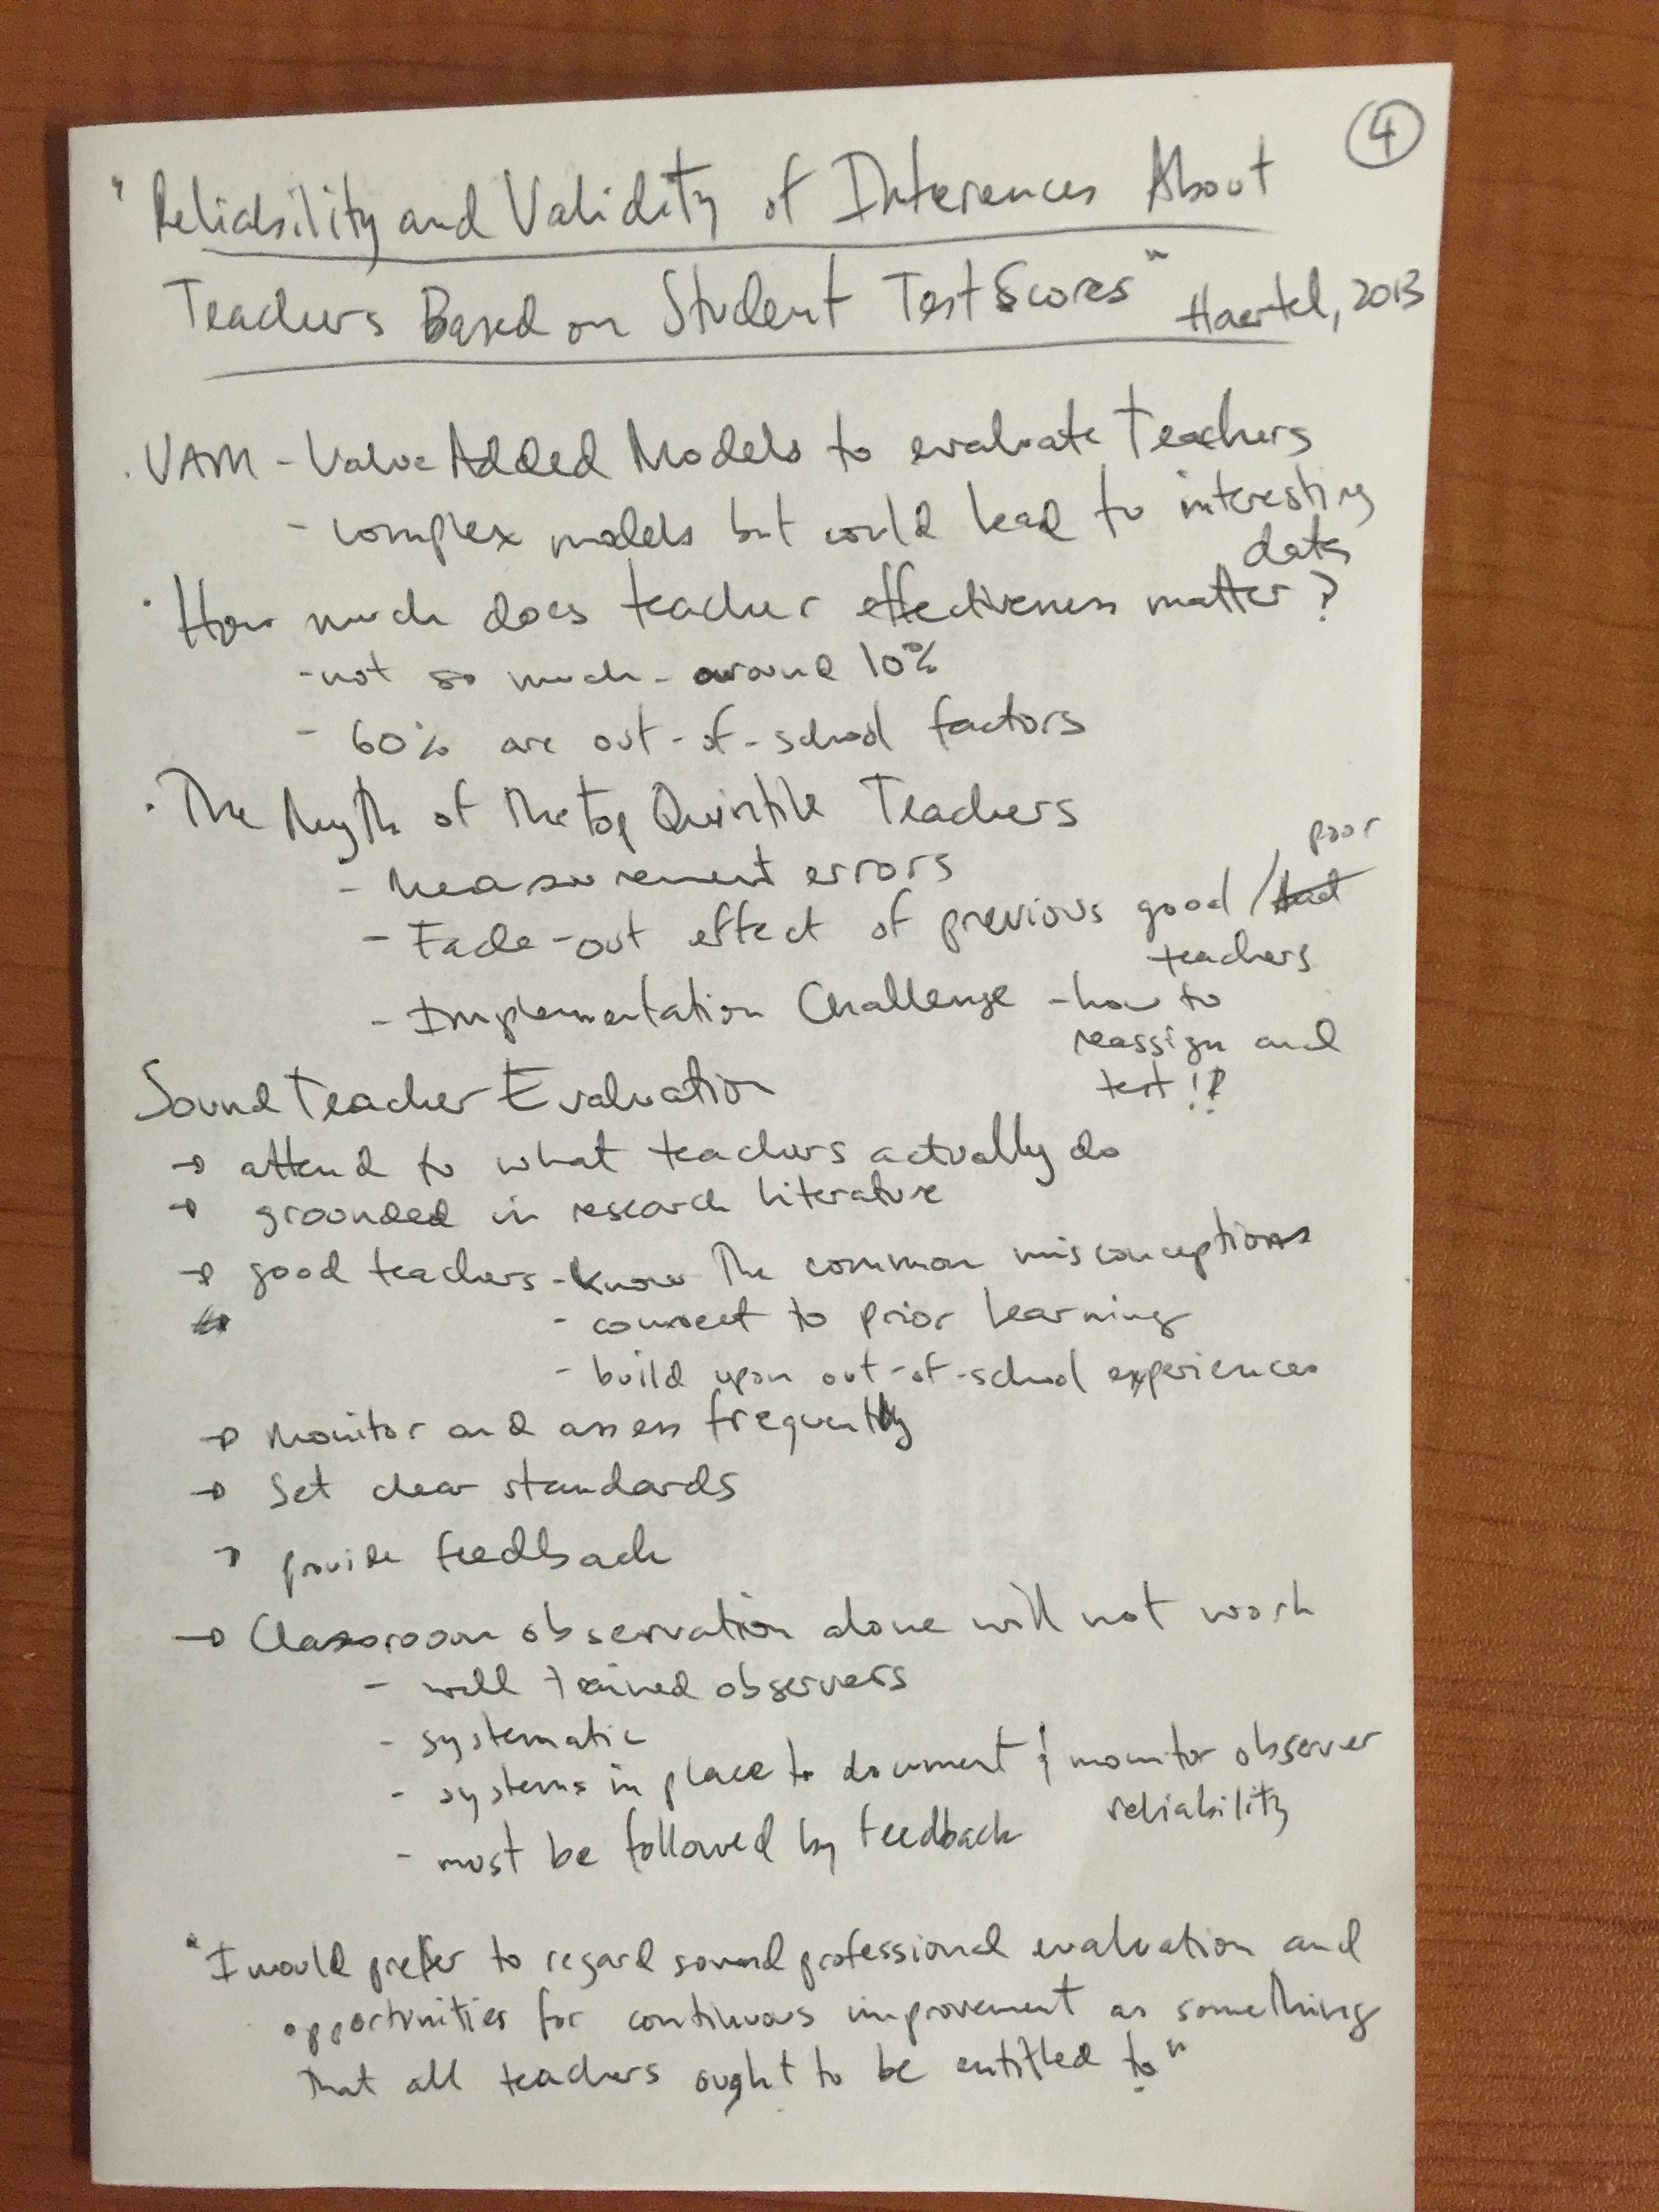 4
"Reliability and Validity of Inferences About
Teachers Based on Student Test Scores" Haertel, 2013
· VAM - Value Added Models to evaluate teachers
- complex models but could lead to interesting
data
· How much does teacher effectiveness matter?
- not so much - around 10%
- 60% are out-of-school factors
· The Myth of the Top Quintile Teachers
- measurement errors
poor
- Fade-out effect of previous good / bad
teachers
- Implementation Challenge - how to
reassign and
test !?
Sound Teacher Evaluation
→ attend to what teachers actually do
→ grounded in research literature
→ good teachers - know the common misconceptions
- connect to prior learning
- build upon out-of-school experiences
→ Monitor and assess frequently
→ Set clear standards
→ provide feedback
→ Classroom observation alone will not work
- well trained observers
- systematic
- systems in place to document & monitor observer
reliability
- must be followed by feedback
"I would prefer to regard sound professional evaluation and
opportunities for continuous improvement as something
that all teachers ought to be entitled to"